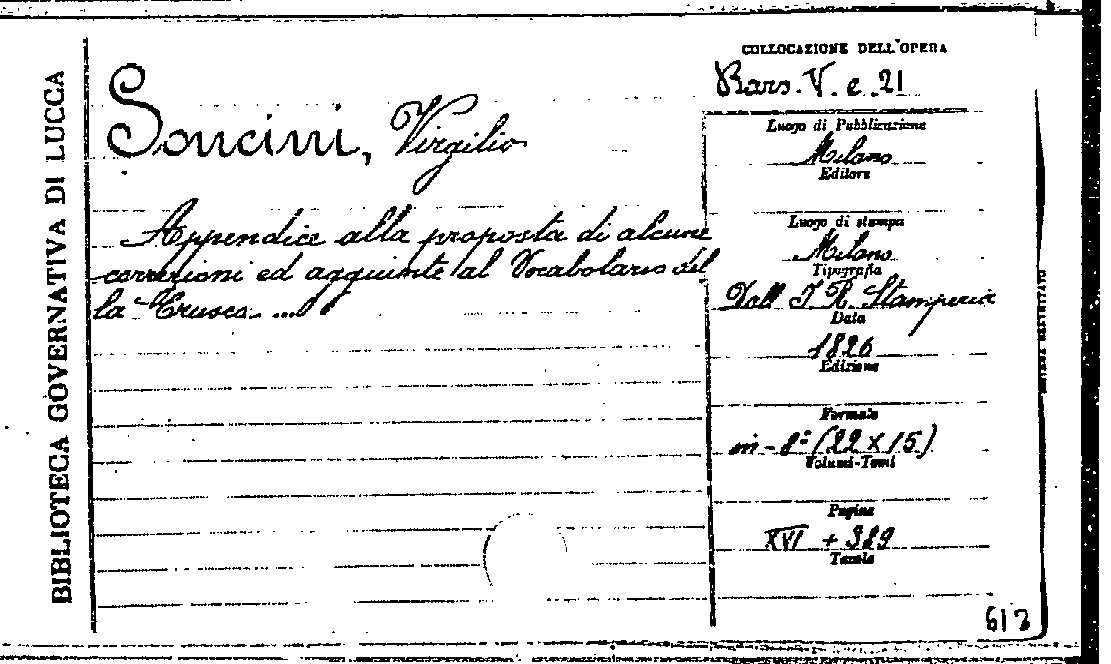 BIBLIOTECA GOVERNATIVA DI LUCCA
Soncini, Virgilio
Appendice alla proposta di alcune
correzioni ed aggiunte al Vocabolario del
la Crusca. ...
COLLOCAZIONE DELL'OPERA
Bars. V. e. 21
Luogo di Pubblicazione
Milano
Editore
Luogo di stampa
Milano
Tipografia
Dall I. R. Stamperia
Data
1826
Edizione
Formato
in - 8º (22 X 15)
Volumi-Tomi
Pagine
XVI + 389
Tavole
612